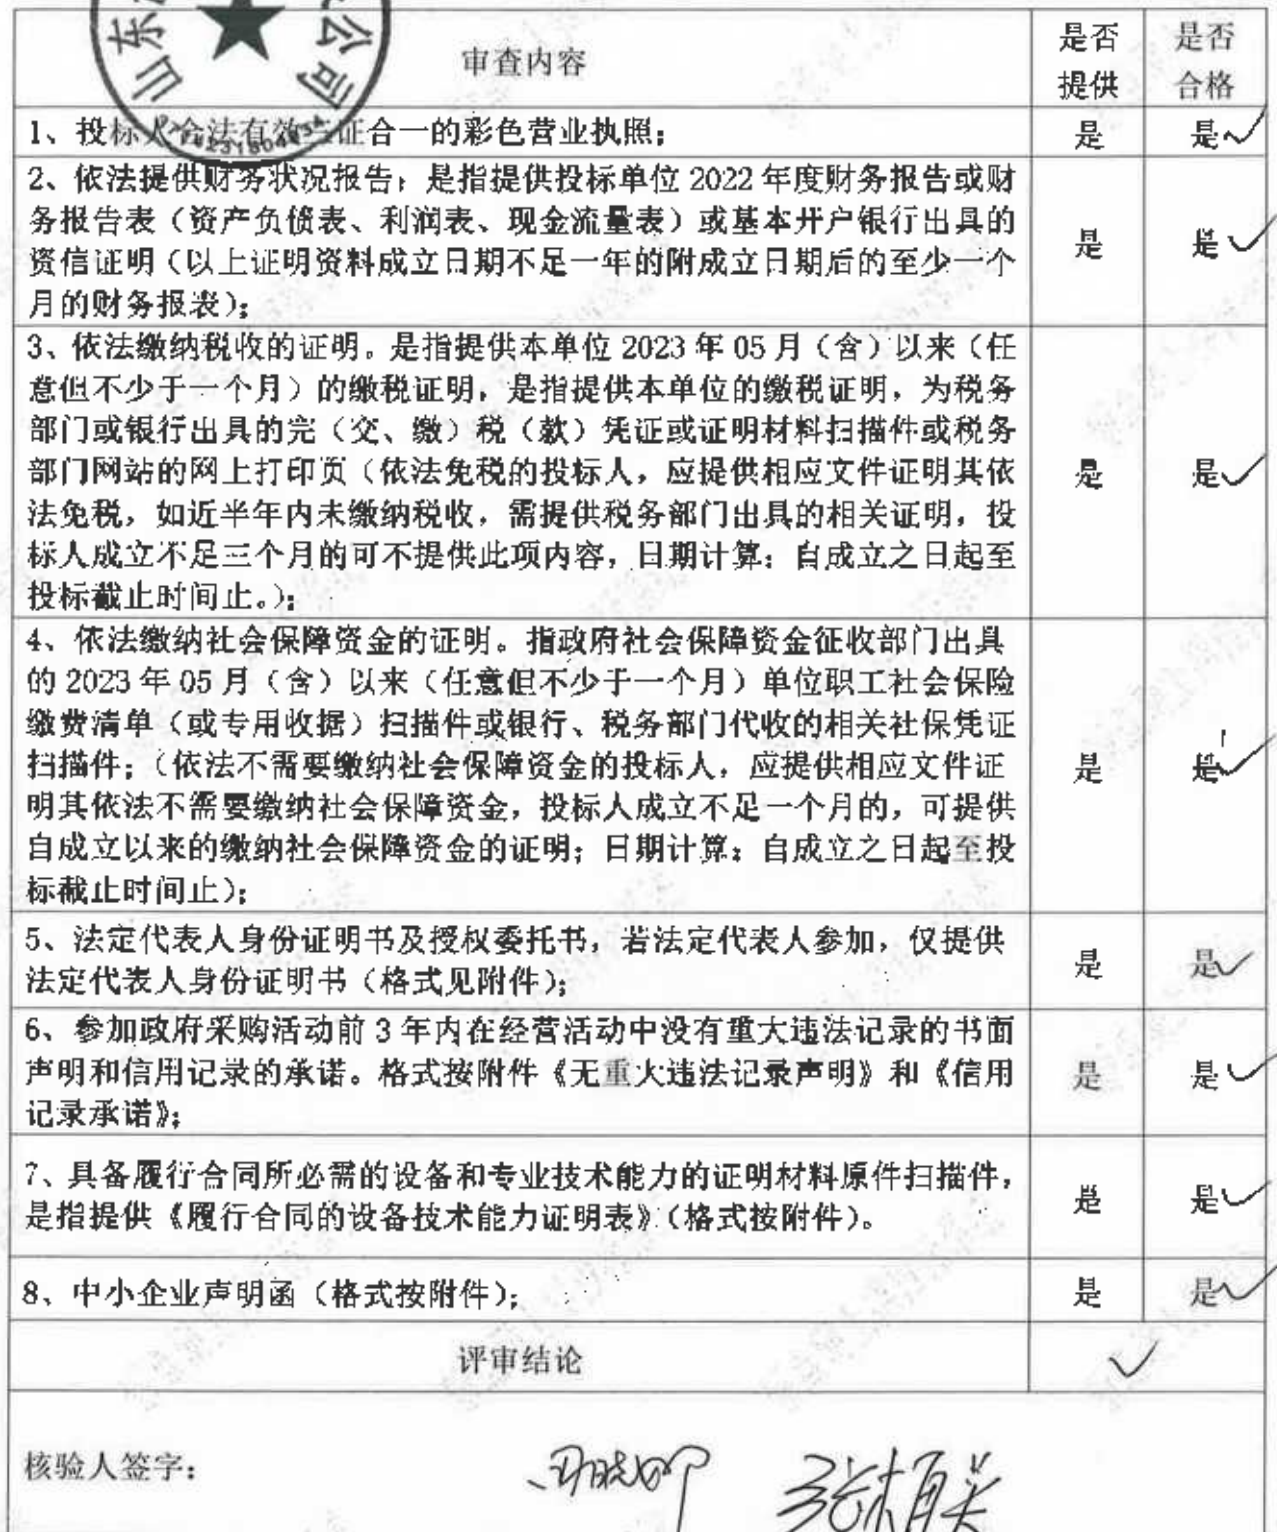 山东
公司
审查内容
是否提供
是否合格
1、投标人合法有效三证合一的彩色营业执照;
是
是
2、依法提供财务状况报告:是指提供投标单位 2022 年度财务报告或财
务报告表(资产负债表、利润表、现金流量表)或基本开户银行出具的
资信证明(以上证明资料成立日期不足一年的附成立日期后的至少一个
月的财务报表);
是
是
3、依法缴纳税收的证明。是指提供本单位 2023 年 05 月(含)以来(任
意但不少于一个月)的缴税证明,是指提供本单位的缴税证明,为税务
部门或银行出具的完(交、缴)税(款)凭证或证明材料扫描件或税务
部门网站的网上打印页(依法免税的投标人,应提供相应文件证明其依
法免税,如近半年内未缴纳税收,需提供税务部门出具的相关证明,投
标人成立不足三个月的可不提供此项内容,日期计算:自成立之日起至
投标截止时间止。);
是
是
4、依法缴纳社会保障资金的证明。指政府社会保障资金征收部门出具
的 2023 年 05 月(含)以来(任意但不少于一个月)单位职工社会保险
缴费清单(或专用收据)扫描件或银行、税务部门代收的相关社保凭证
扫描件;(依法不需要缴纳社会保障资金的投标人,应提供相应文件证
明其依法不需要缴纳社会保障资金,投标人成立不足一个月的,可提供
自成立以来的缴纳社会保障资金的证明;日期计算:自成立之日起至投
标截止时间止);
是
是
5、法定代表人身份证明书及授权委托书,若法定代表人参加,仅提供
法定代表人身份证明书(格式见附件);
是
是
6、参加政府采购活动前 3 年内在经营活动中没有重大违法记录的书面
声明和信用记录的承诺。格式按附件《无重大违法记录声明》和《信用
记录承诺》;
是
是
7、具备履行合同所必需的设备和专业技术能力的证明材料原件扫描件,
是指提供《履行合同的设备技术能力证明表》(格式按附件)。
是
是
8、中小企业声明函(格式按附件);
是
是
评审结论
核验人签字: